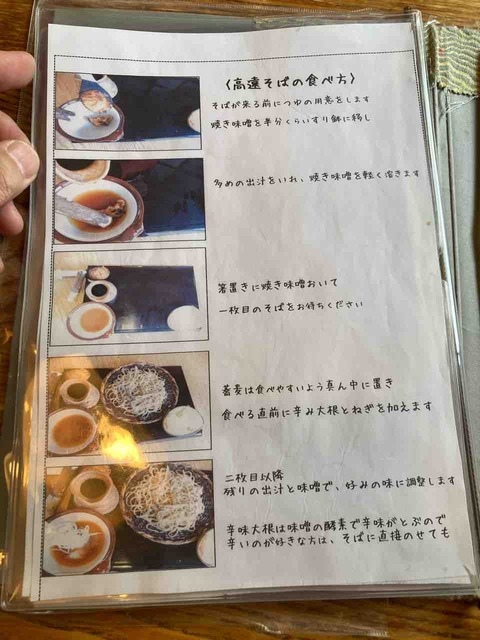 〈高遠そばの食べ方〉
そばが来る前につゆの用意をします
焼き味噌を半分くらいすり鉢に移し
多めの出汁をいれ、焼き味噌を軽く溶きます
箸置きに焼き味噌おいて
一枚目のそばをお待ちください
蕎麦は食べやすいよう真ん中に置き
食べる直前に辛み大根とねぎを加えます
二枚目以降
残りの出汁と味噌で、好みの味に調整します
辛味大根は味噌の酵素で辛味がとぶので
辛いのが好きな方は、そばに直接のせても